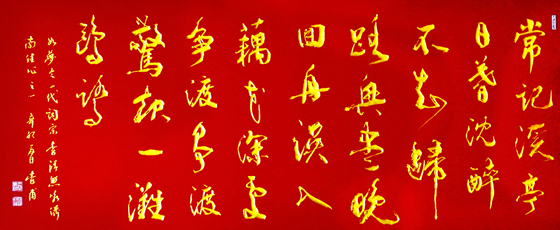 常記溪亭
日暮沈醉
不知歸
路興盡晚
回舟誤入
藕花深處
争渡争渡
驚起一灘
鷗鷺
如夢令一代詞宗李清照
之一